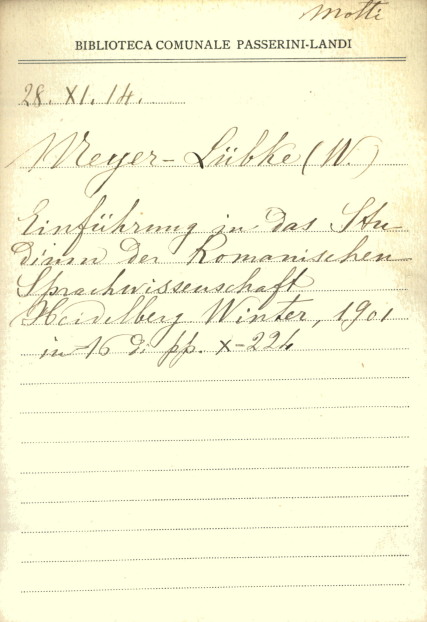 Motti
BIBLIOTECA COMUNALE PASSERINI-LANDI
28. XI. 14.
Meyer-Lübke (W.)
Einführung in das Stu
dium der Romanischen
Sprachwissenschaft
Heidelberg Winter, 1901
in 16 di pp. X-224